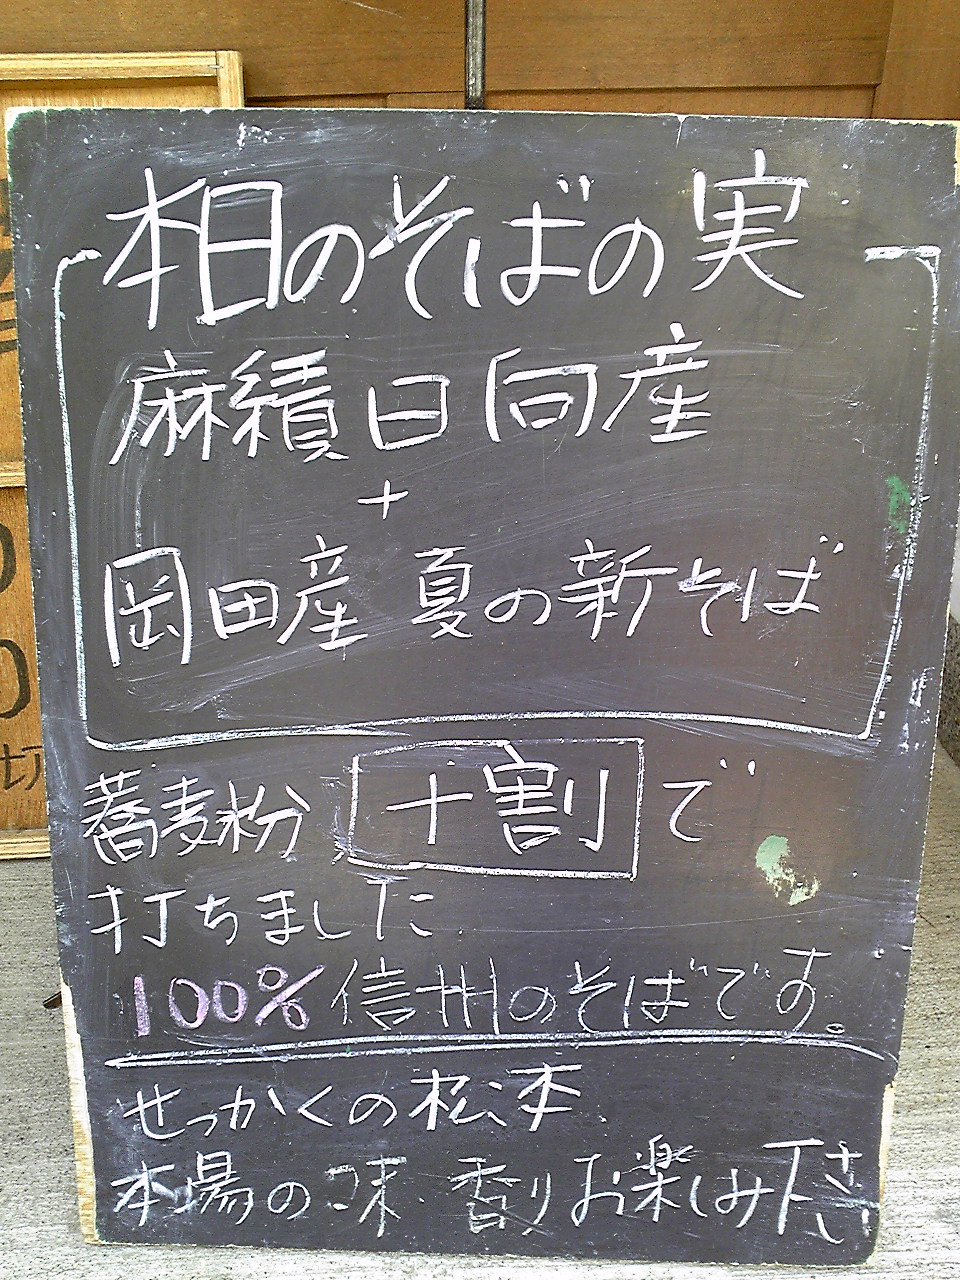 本日のそばの実
麻績日向産
+
岡田産 夏の新そば
蕎麦粉 十割 で
打ちました
100%信州のそばです。
せっかくの松本
本場の味・香りお楽しみ下さい